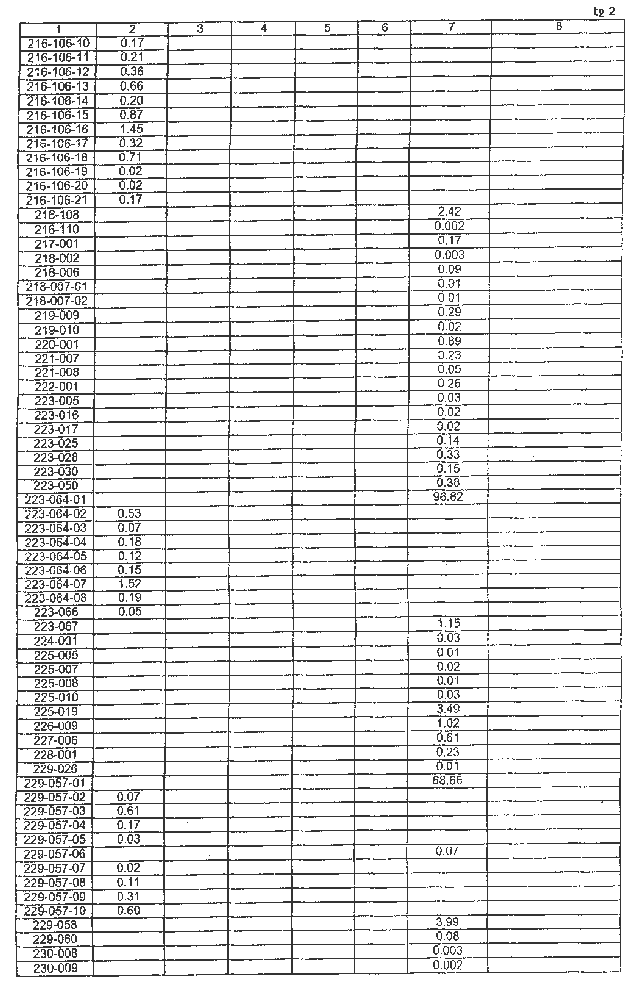 tə 2
1 2 3 4 5 6 7 8
216-106-10 0.17
216-106-11 0.21
216-106-12 0.36
216-106-13 0.66
216-106-14 0.20
216-106-15 0.87
216-106-16 1.45
216-106-17 0.32
216-106-18 0.71
216-106-19 0.02
216-106-20 0.02
216-106-21 0.17
216-108 2.42
216-110 0.002
217-001 0.17
218-002 0.003
218-006 0.09
218-007-01
218-007-02 0.01
219-009 0.29
219-010 0.02
220-001
221-007 0.23
221-008 0.05
222-001 0.26
223-005 0.03
223-016 0.02
223-017 0.02
223-025 0.14
223-028 0.33
223-030 0.15
223-050
223-064-01
223-064-02 0.53
223-064-03 0.07
223-064-04 0.18
223-064-05 0.12
223-064-06 0.15
223-064-07 1.52
223-064-08 0.19
223-066 0.05
223-067 1.15
224-031 0.03
225-005 0.01
225-007 0.02
225-008 0.01
225-010 0.03
225-019 3.49
226-009 1.02
227-006 0.61
228-001 0.23
229-026 0.01
229-057-01
229-057-02 0.07
229-057-03 0.61
229-057-04 0.17
229-057-05 0.03
229-057-06 0.07
229-057-07 0.02
229-057-08 0.11
229-057-09 0.31
229-057-10 0.60
229-058 3.99
229-060 0.08
230-008 0.003
230-009 0.002